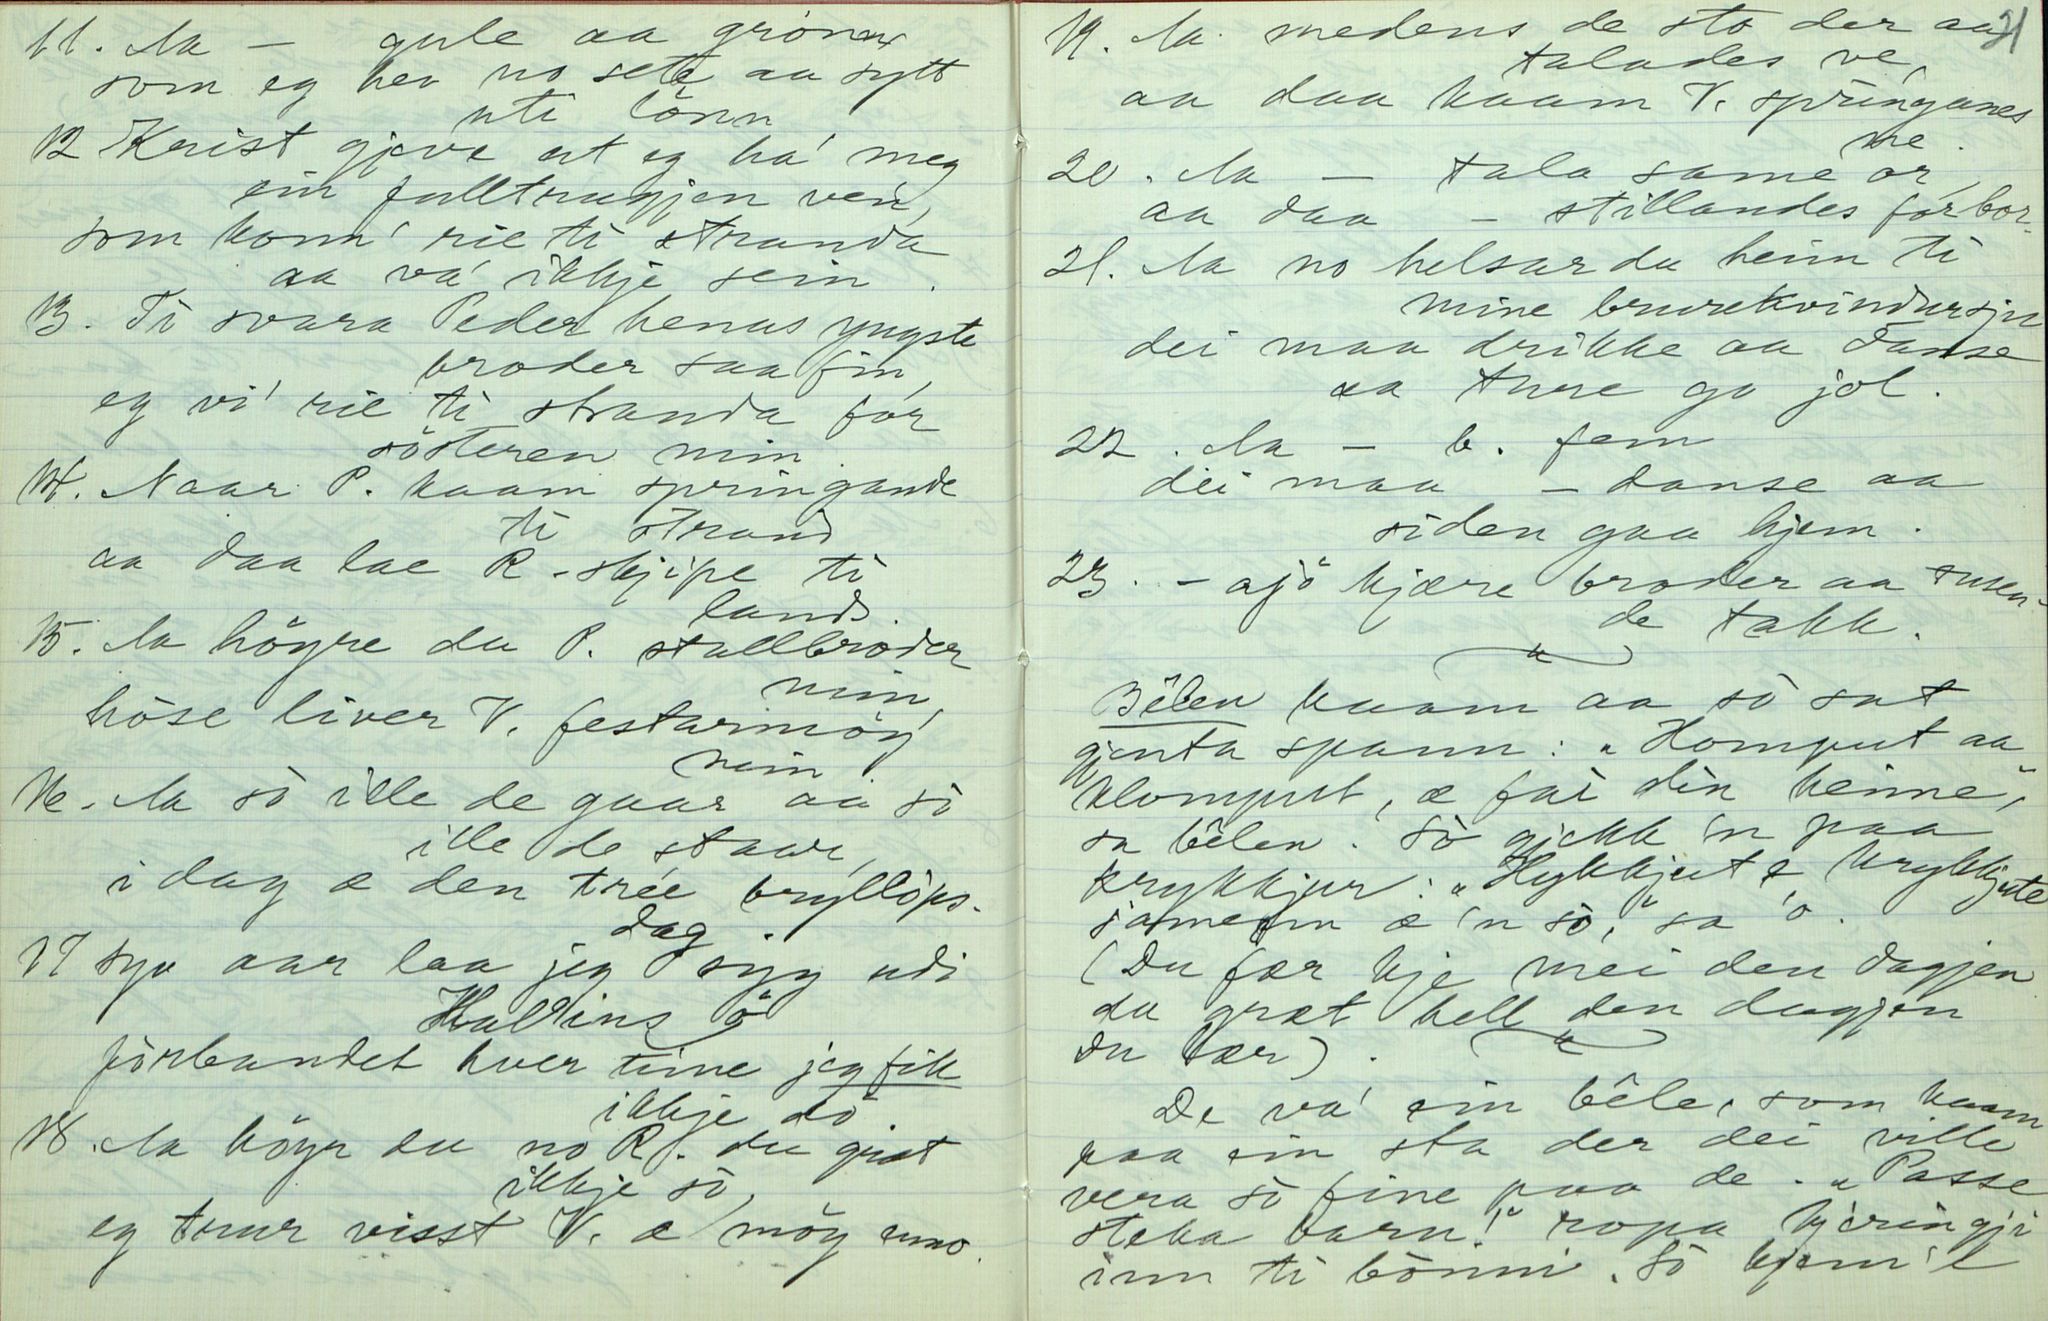 11. Aa — gule aa grönar
som eg hev no sete aa sytt
uti lönn
12 Krist gjeve at eg ha' meg
ein fulltrugjen ven,
som kom' rie ti stranda
aa va' ikkje sein.
13. Ti svara Peder henas yngste
broder saa fin,
eg vi' rie ti stranda för
sösteren min.
14. Naar P. kaam springande
ti strand
aa daa lae R. skjipe ti
land.
15. Aa höyre du P. stallbroder
min,
höse liver V. festarmöy
min.
16. Aa sò ille de gaar aa sò
ille de staar,
i dag æ den trée bryllöps-
dag.
17 syv aar laa jeg syg udi
Hallins ö
förbandet hver time jeg fik
ikkje dö
18. Aa höyr du no R. du græt
ikkje sò,
eg truur visst V. æ möy enno.
21
19. Aa medens de sto der aa
talades ve,
aa daa kaam V. springanes
ne.
20. Aa — tala same or,
aa daa — stillandes för bor.
21. Aa no helsar du heim ti
mine brurekvindur sju
dei maa drikke aa danse
aa ture go jol.
22. Aa — b. fem
dei maa — danse aa
siden gaa hjem.
23. — ajö kjære broder aa tusen-
de takk.
Bêlen kaam aa sò sat
gjenta spann: "Homput aa
klomput, æ fai din heime",
sa bêlen. Sò gjekk 'n paa
krykkjur: "Hykkjut æ krykkjute
samein æ 'n sò," sa 'o.
(Du fær kje mei den dagjen
du græt hell den dagjen
du lær).
De va' ein bêle, som kaam
paa ein sta der dei ville
vera sò fine paa de. "Passe
steka barn!" ropa kjeringji
inn ti bönni. Sò kjem 'e